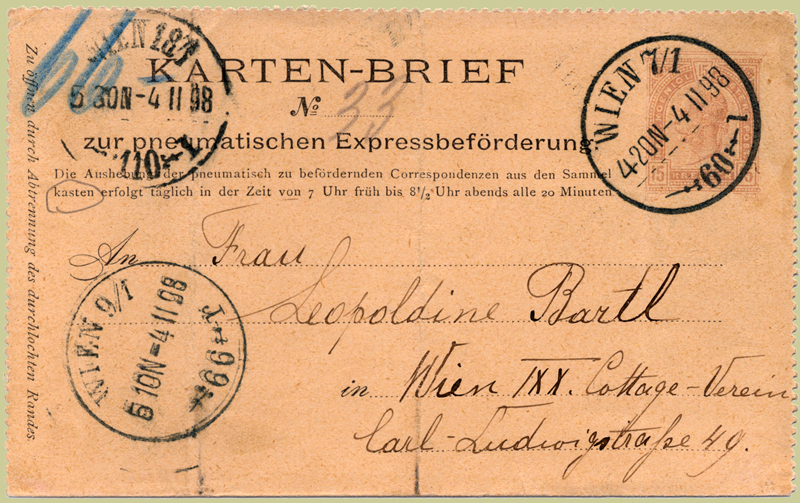 66
WIEN 18/1
5 30N-4 II 98
·110·
KARTEN-BRIEF
№ 23
zur pneumatischen Expressbeförderung.
Die Aushebung der pneumatisch zu befördernden Correspondenzen aus den Sammel
kasten erfolgt täglich in der Zeit von 7 Uhr früh bis 8½ Uhr abends alle 20 Minuten.
WIEN 7/1
4 20N-4 II 98
·60·
15
An Frau
Leopoldine Bartl
in Wien IXX. Cottage-Verein
Carl-Ludwigstraße 49.
WIEN 9/1
5 10N-4 II 98
·66·
Zu öffnen durch Abtrennung des durchlochten Randes